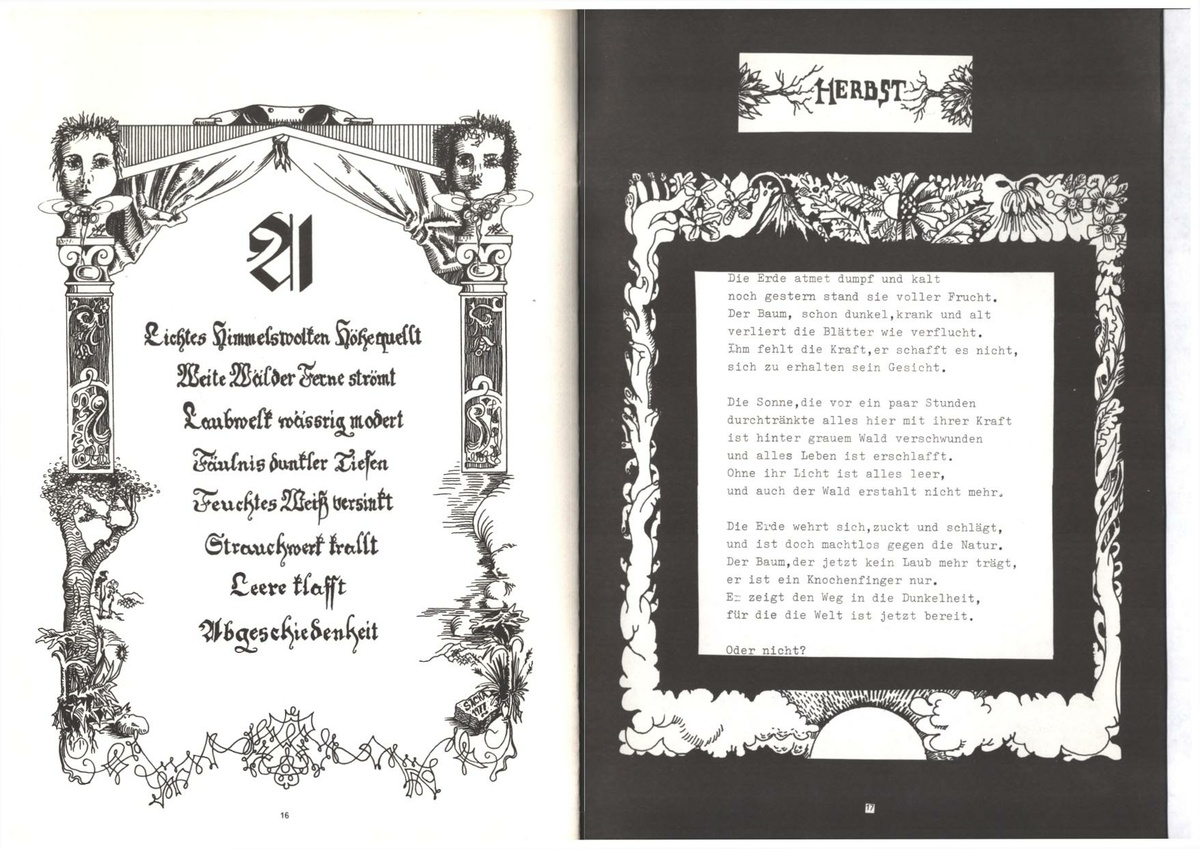 A
Lichtes Himmelswolken Höhe quellt
Weite Wälder Ferne strömt
Laubwelk wässrig modert
Fäulnis dunkler Tiefen
Feuchtes Weiß versinkt
Strauchwerk krallt
Leere klafft
Abgeschiedenheit
16
HERBST
Die Erde atmet dumpf und kalt
noch gestern stand sie voller Frucht.
Der Baum, schon dunkel,krank und alt
verliert die Blätter wie verflucht.
Ihm fehlt die Kraft,er schafft es nicht,
sich zu erhalten sein Gesicht.
Die Sonne,die vor ein paar Stunden
durchtränkte alles hier mit ihrer Kraft
ist hinter grauem Wald verschwunden
und alles Leben ist erschlafft.
Ohne ihr Licht ist alles leer,
und auch der Wald erstahlt nicht mehr.
Die Erde wehrt sich,zuckt und schlägt,
und ist doch machtlos gegen die Natur.
Der Baum,der jetzt kein Laub mehr trägt,
er ist ein Knochenfinger nur.
Er zeigt den Weg in die Dunkelheit,
für die die Welt ist jetzt bereit.
Oder nicht?
17